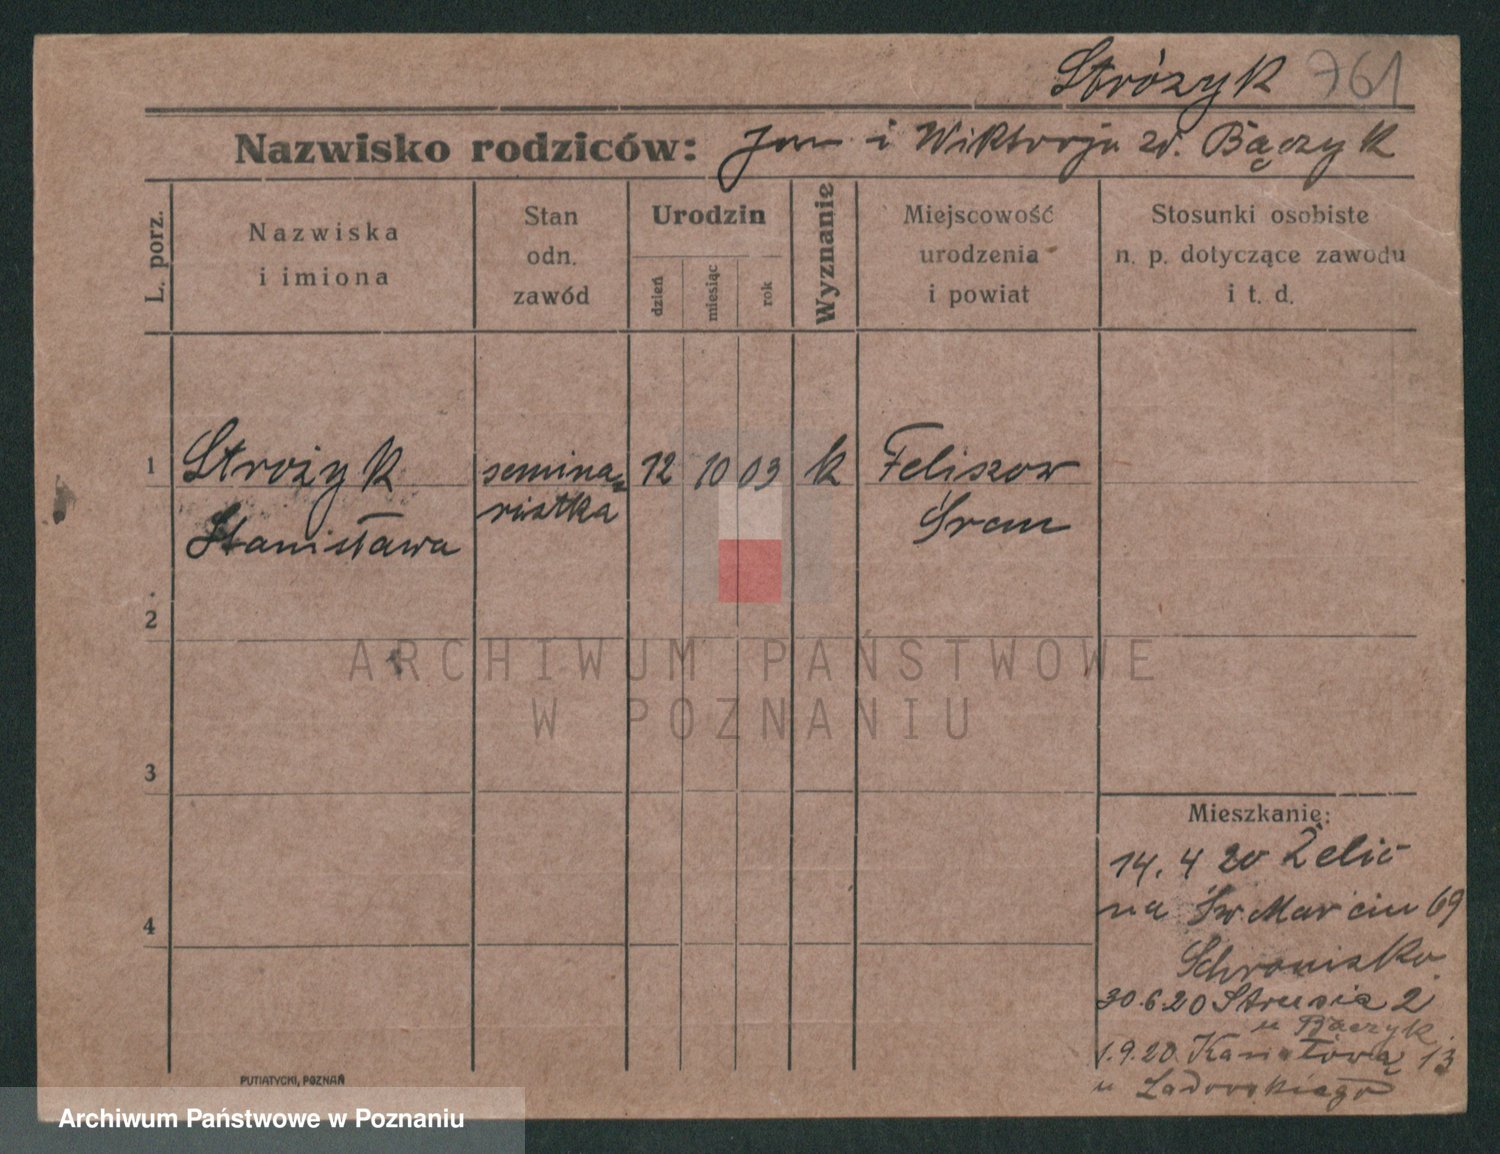 Stróżyk 761
Nazwisko rodziców: Jan i Wiktorja zd. Bączyk
L. porz.
Nazwiska
i imiona
Stan
odn.
zawód
Urodzin
dzień
miesiąc
rok
Wyznanie
Miejscowość
urodzenia
i powiat
Stosunki osobiste
n. p. dotyczące zawodu
i t. d.
1 Strożyk semina= 12 10 03 k Feliszow
Stanisława ristka Śrem
2
ARCHIWUM PAŃSTWOWE
W POZNANIU
3
4
Mieszkanie:
14. 4 20
na Św. Marcin 69
Schronisko
30.6.20 Strusia 2
u Bączyk
1.9.20. Kanałową 13
u
PUTIATYCKI, POZNAŃ
Archiwum Państwowe w Poznaniu